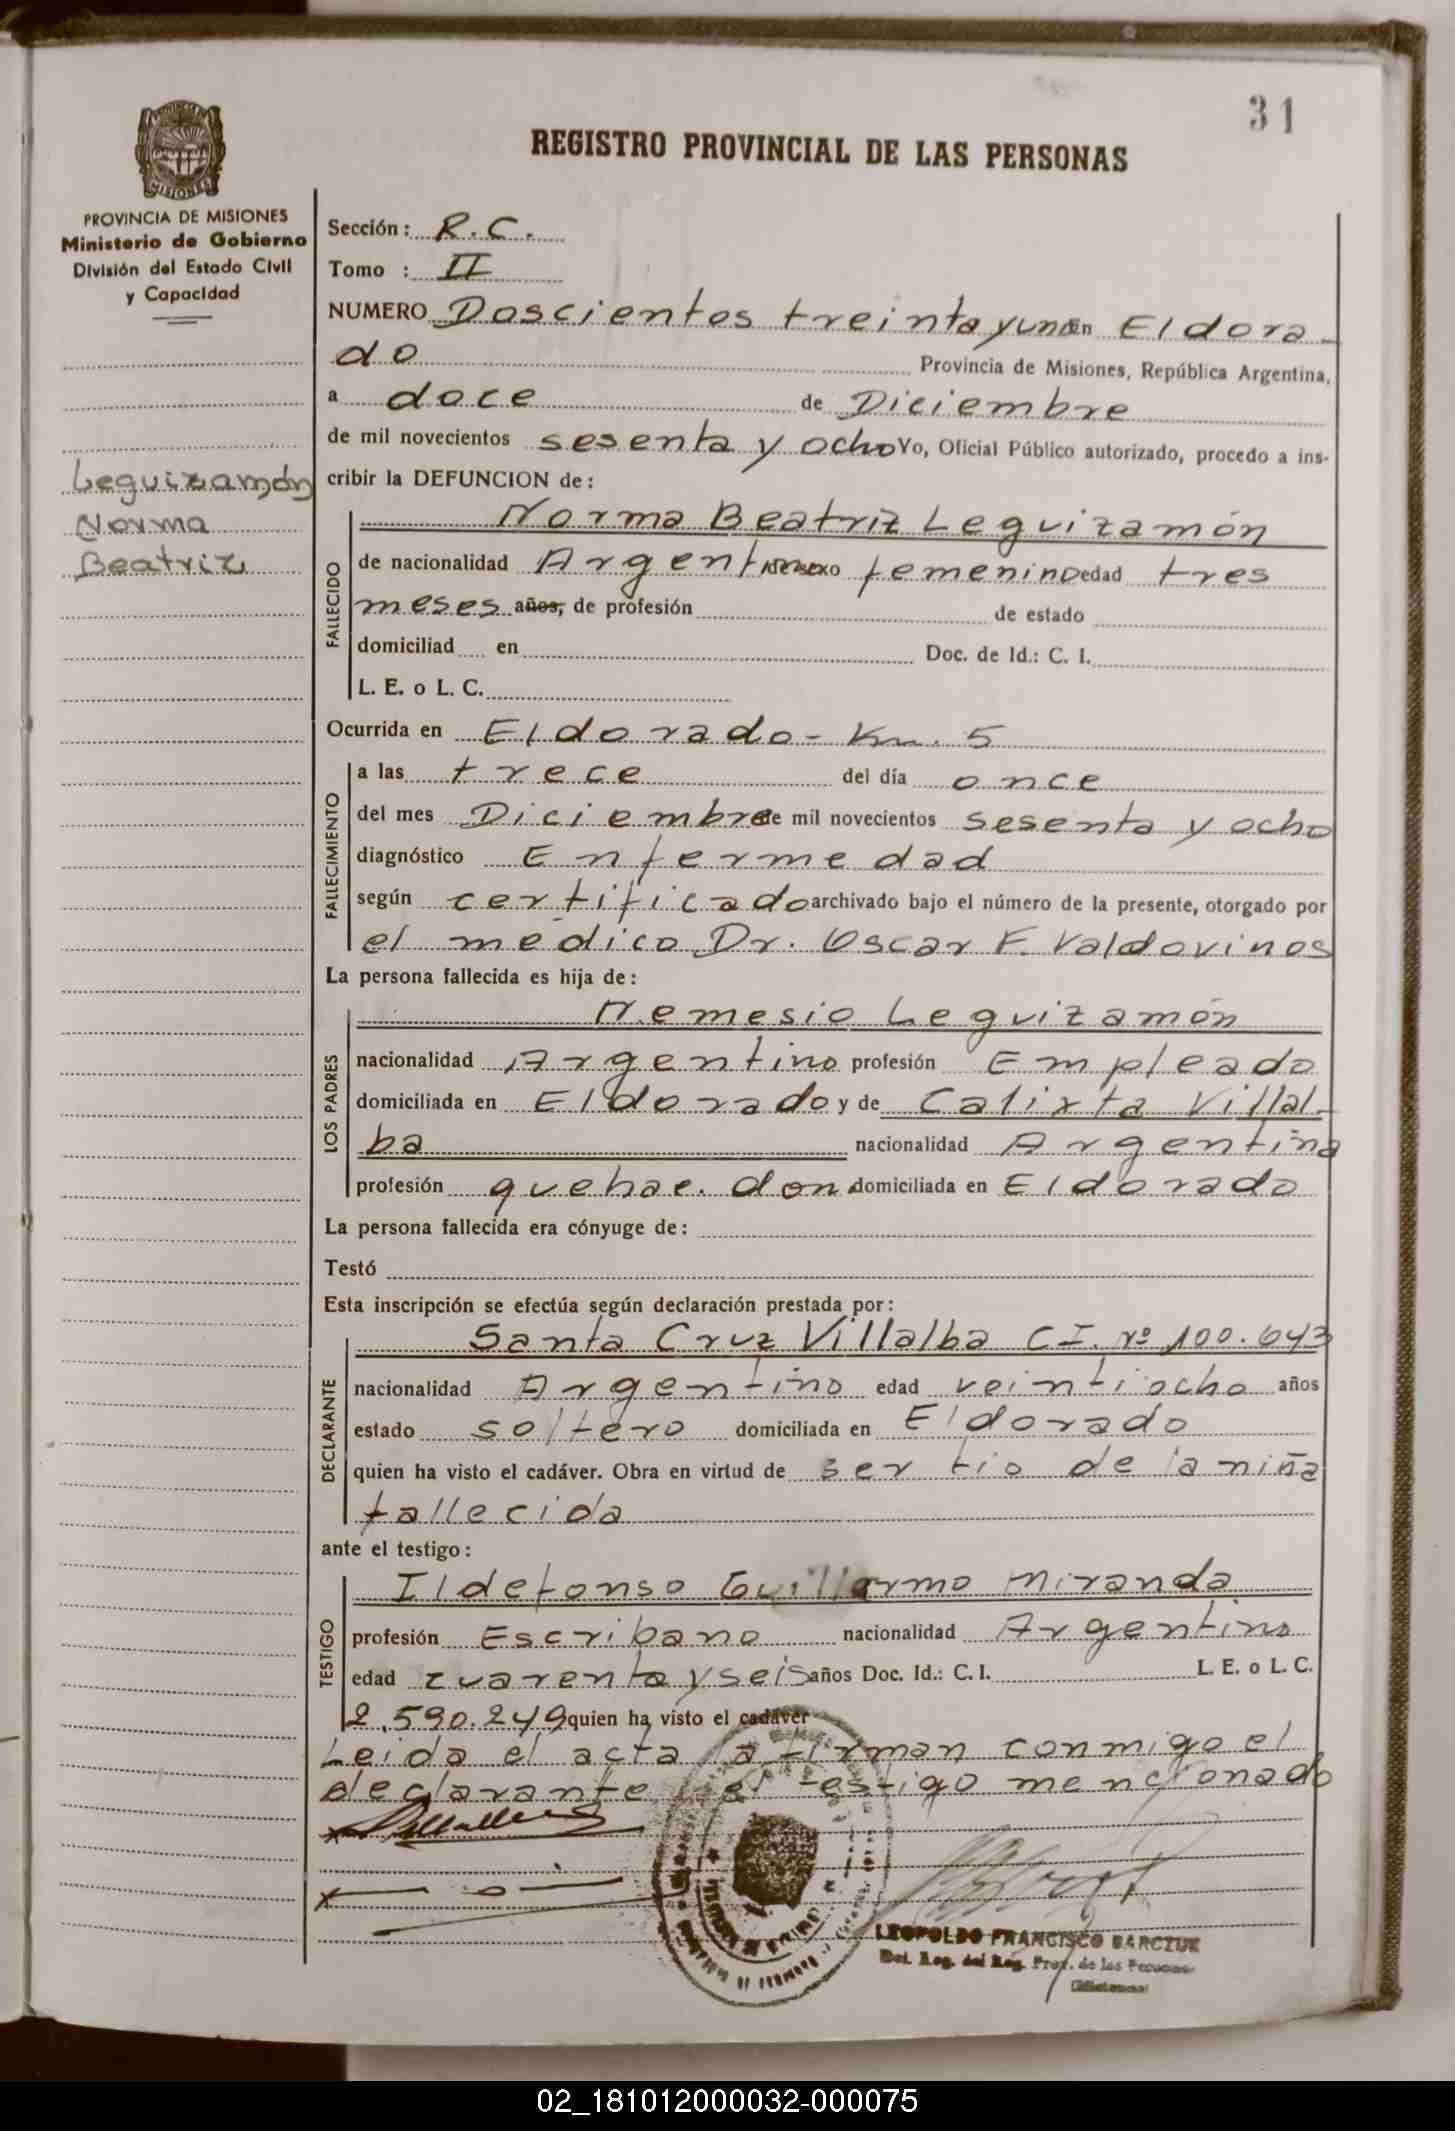 31
REGISTRO PROVINCIAL DE LAS PERSONAS
PROVINCIA DE MISIONES
Ministerio de Gobierno
División del Estado Civil
y Capacidad
Leguizamón
Norma
Beatriz
Sección: R.C.
Tomo : II
NUMERO Doscientos treinta y uno en Eldora-
do Provincia de Misiones, República Argentina,
a doce de Diciembre
de mil novecientos sesenta y ocho Yo, Oficial Público autorizado, procedo a ins-
cribir la DEFUNCION de:
FALLECIDO
Norma Beatriz Leguizamón
de nacionalidad Argentina sexo femenino edad tres
meses años, de profesión de estado
domiciliad en Doc. de Id.: C. I.
L. E. o L. C.
Ocurrida en Eldorado - Km. 5
FALLECIMIENTO
a las trece del día once
del mes Diciembre de mil novecientos sesenta y ocho
diagnóstico Enfermedad
según certificado archivado bajo el número de la presente, otorgado por
el medico Dr. Oscar F. Valdovinos
La persona fallecida es hija de:
LOS PADRES
Nemesio Leguizamón
nacionalidad Argentino profesión Empleado
domiciliada en Eldorado y de Calixta Villal-
ba nacionalidad Argentina
profesión quehac. dom domiciliada en Eldorado
La persona fallecida era cónyuge de:
Testó
Esta inscripción se efectúa según declaración prestada por:
DECLARANTE
Santa Cruz Villalba C I. Nº 100.643
nacionalidad Argentino edad veintiocho años
estado soltero domiciliada en Eldorado
quien ha visto el cadáver. Obra en virtud de ser tio de la niña
fallecida
ante el testigo:
TESTIGO
Ildefonso Guillermo Miranda
profesión Escribano nacionalidad Argentino
edad cuarenta y seis años Doc. Id.: C. I. L. E. o L. C.
2.590.249 quien ha visto el cadáver
Leida el acta la firman conmigo el
declarante el testigo mencionado
LEOPOLDO FRANCISCO BARCZUK
Del. Reg. del Reg. Prov. de las Personas
02_181012000032-000075